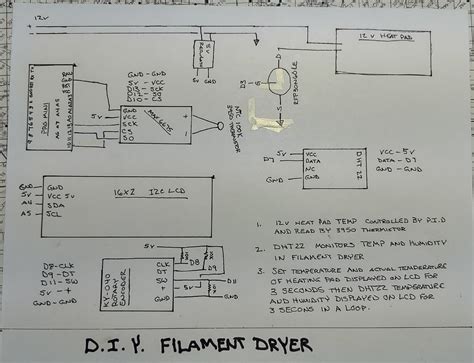 12V
12V HEAT PAD
5V
GND - GND
5V - VCC
D13 - SCK
D12 - SO
D10 - CS
D3
G
D
S
PRO MINI
GND
VCC
SCK
CS
SO
MAX 6675
5V
D7
VCC
DATA
NC
GND
DHT 22
GND - GND
DATA - D7
5V - VCC
GND
5V
A4
A5
GND
VCC 5V
SDA
SCL
16X2 I2C LCD
1. 12V HEAT PAD TEMP CONTROLLED BY P.I.D
AND READ BY 3950 THERMISTOR
2. DHT22 MONITORS TEMP AND HUMIDITY
IN FILAMENT DRYER
3. SET TEMPERATURE AND ACTUAL TEMPERATURE
OF HEATING PAD DISPLAYED ON LCD FOR
3 SECONDS THEN DHT22 TEMPERATURE
AND HUMIDITY DISPLAYED ON LCD FOR
3 SECONS IN A LOOP.
5V
D8
D9
D11
5V
D8 - CLK
D9 - DT
D11 - SW
5V - +
GND - GND
KY-040
ROTARY
ENCODER
CLK
DT
SW
+
GND
D.I.Y. FILAMENT DRYER